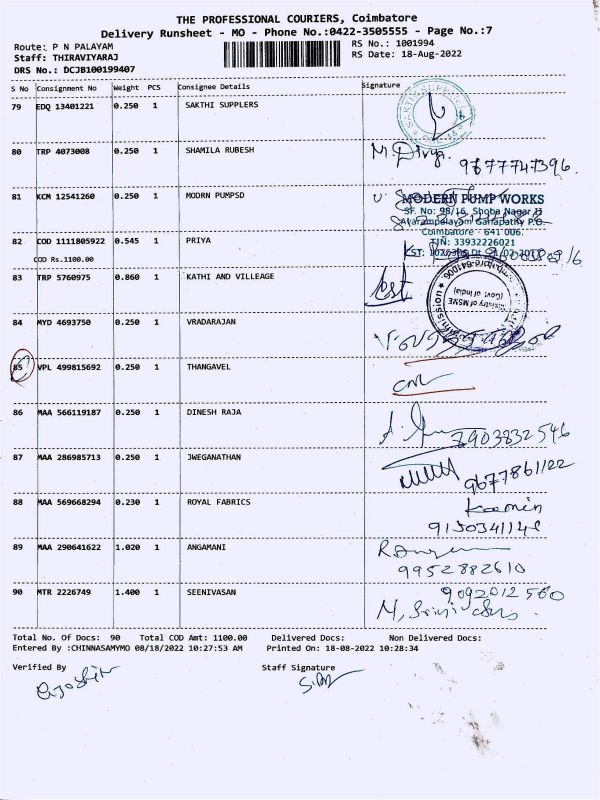 THE PROFESSIONAL COURIERS, Coimbatore
Delivery Runsheet - MO - Phone No.:0422-3505555 - Page No.:7
Route: P N PALAYAM
RS No.: 1001994
Staff: THIRAVIYARAJ
RS Date: 18-Aug-2022
DRS No.: DCJB100199407
S No Consignment No Weight PCS Consignee Details Signature
79 EDQ 13401221 0.250 1 SAKTHI SUPPLERS
80 TRP 4073008 0.250 1 SHAMILA RUBESH M Divya. 9677747396.
81 KCM 12541260 0.250 1 MODRN PUMPSD
MODERN PUMP WORKS
SF. No: 98/16, Shoba Nagar
Coimbatore - 641 006.
82 COD 1111805922 0.545 1 PRIYA
TIN: 33932226021
COD Rs.1100.00
83 TRP 5760975 0.860 1 KATHI AND VILLEAGE
Ministry of MSME
(Govt of India)
84 MYD 4693750 0.250 1 VRADARAJAN
85 VPL 499815692 0.250 1 THANGAVEL
86 MAA 566119187 0.250 1 DINESH RAJA
7903832546
87 MAA 286985713 0.250 1 JWEGANATHAN
9677861122
88 MAA 569668294 0.230 1 ROYAL FABRICS
89 MAA 290641622 1.020 1 ANGAMANI
9952882610
90 MTR 2226749 1.400 1 SEENIVASAN 9092012560
Total No. Of Docs: 90 Total COD Amt: 1100.00 Delivered Docs: Non Delivered Docs:
Entered By :CHINNASAMYMO 08/18/2022 10:27:53 AM Printed On: 18-08-2022 10:28:34
Verified By Staff Signature